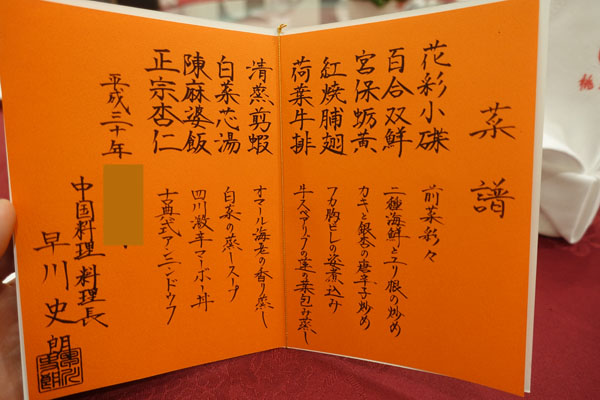 菜譜
花彩小碟 前菜彩々
百合双鮮 二種海鮮とユリ根の炒め
宮保蛎黄 カキと銀杏の唐辛子炒め
紅焼脯翅 フカ胸ビレの姿煮込み
荷葉牛排 牛スペアリブの蓮の葉包み蒸し
清蒸剪蝦 オマール海老の香り蒸し
白菜芯湯 白菜の蒸しスープ
陳麻婆飯 四川激辛マーボー丼
正宗杏仁 古典式アンニンドウフ
平成三十年
中国料理 料理長
早川史朗